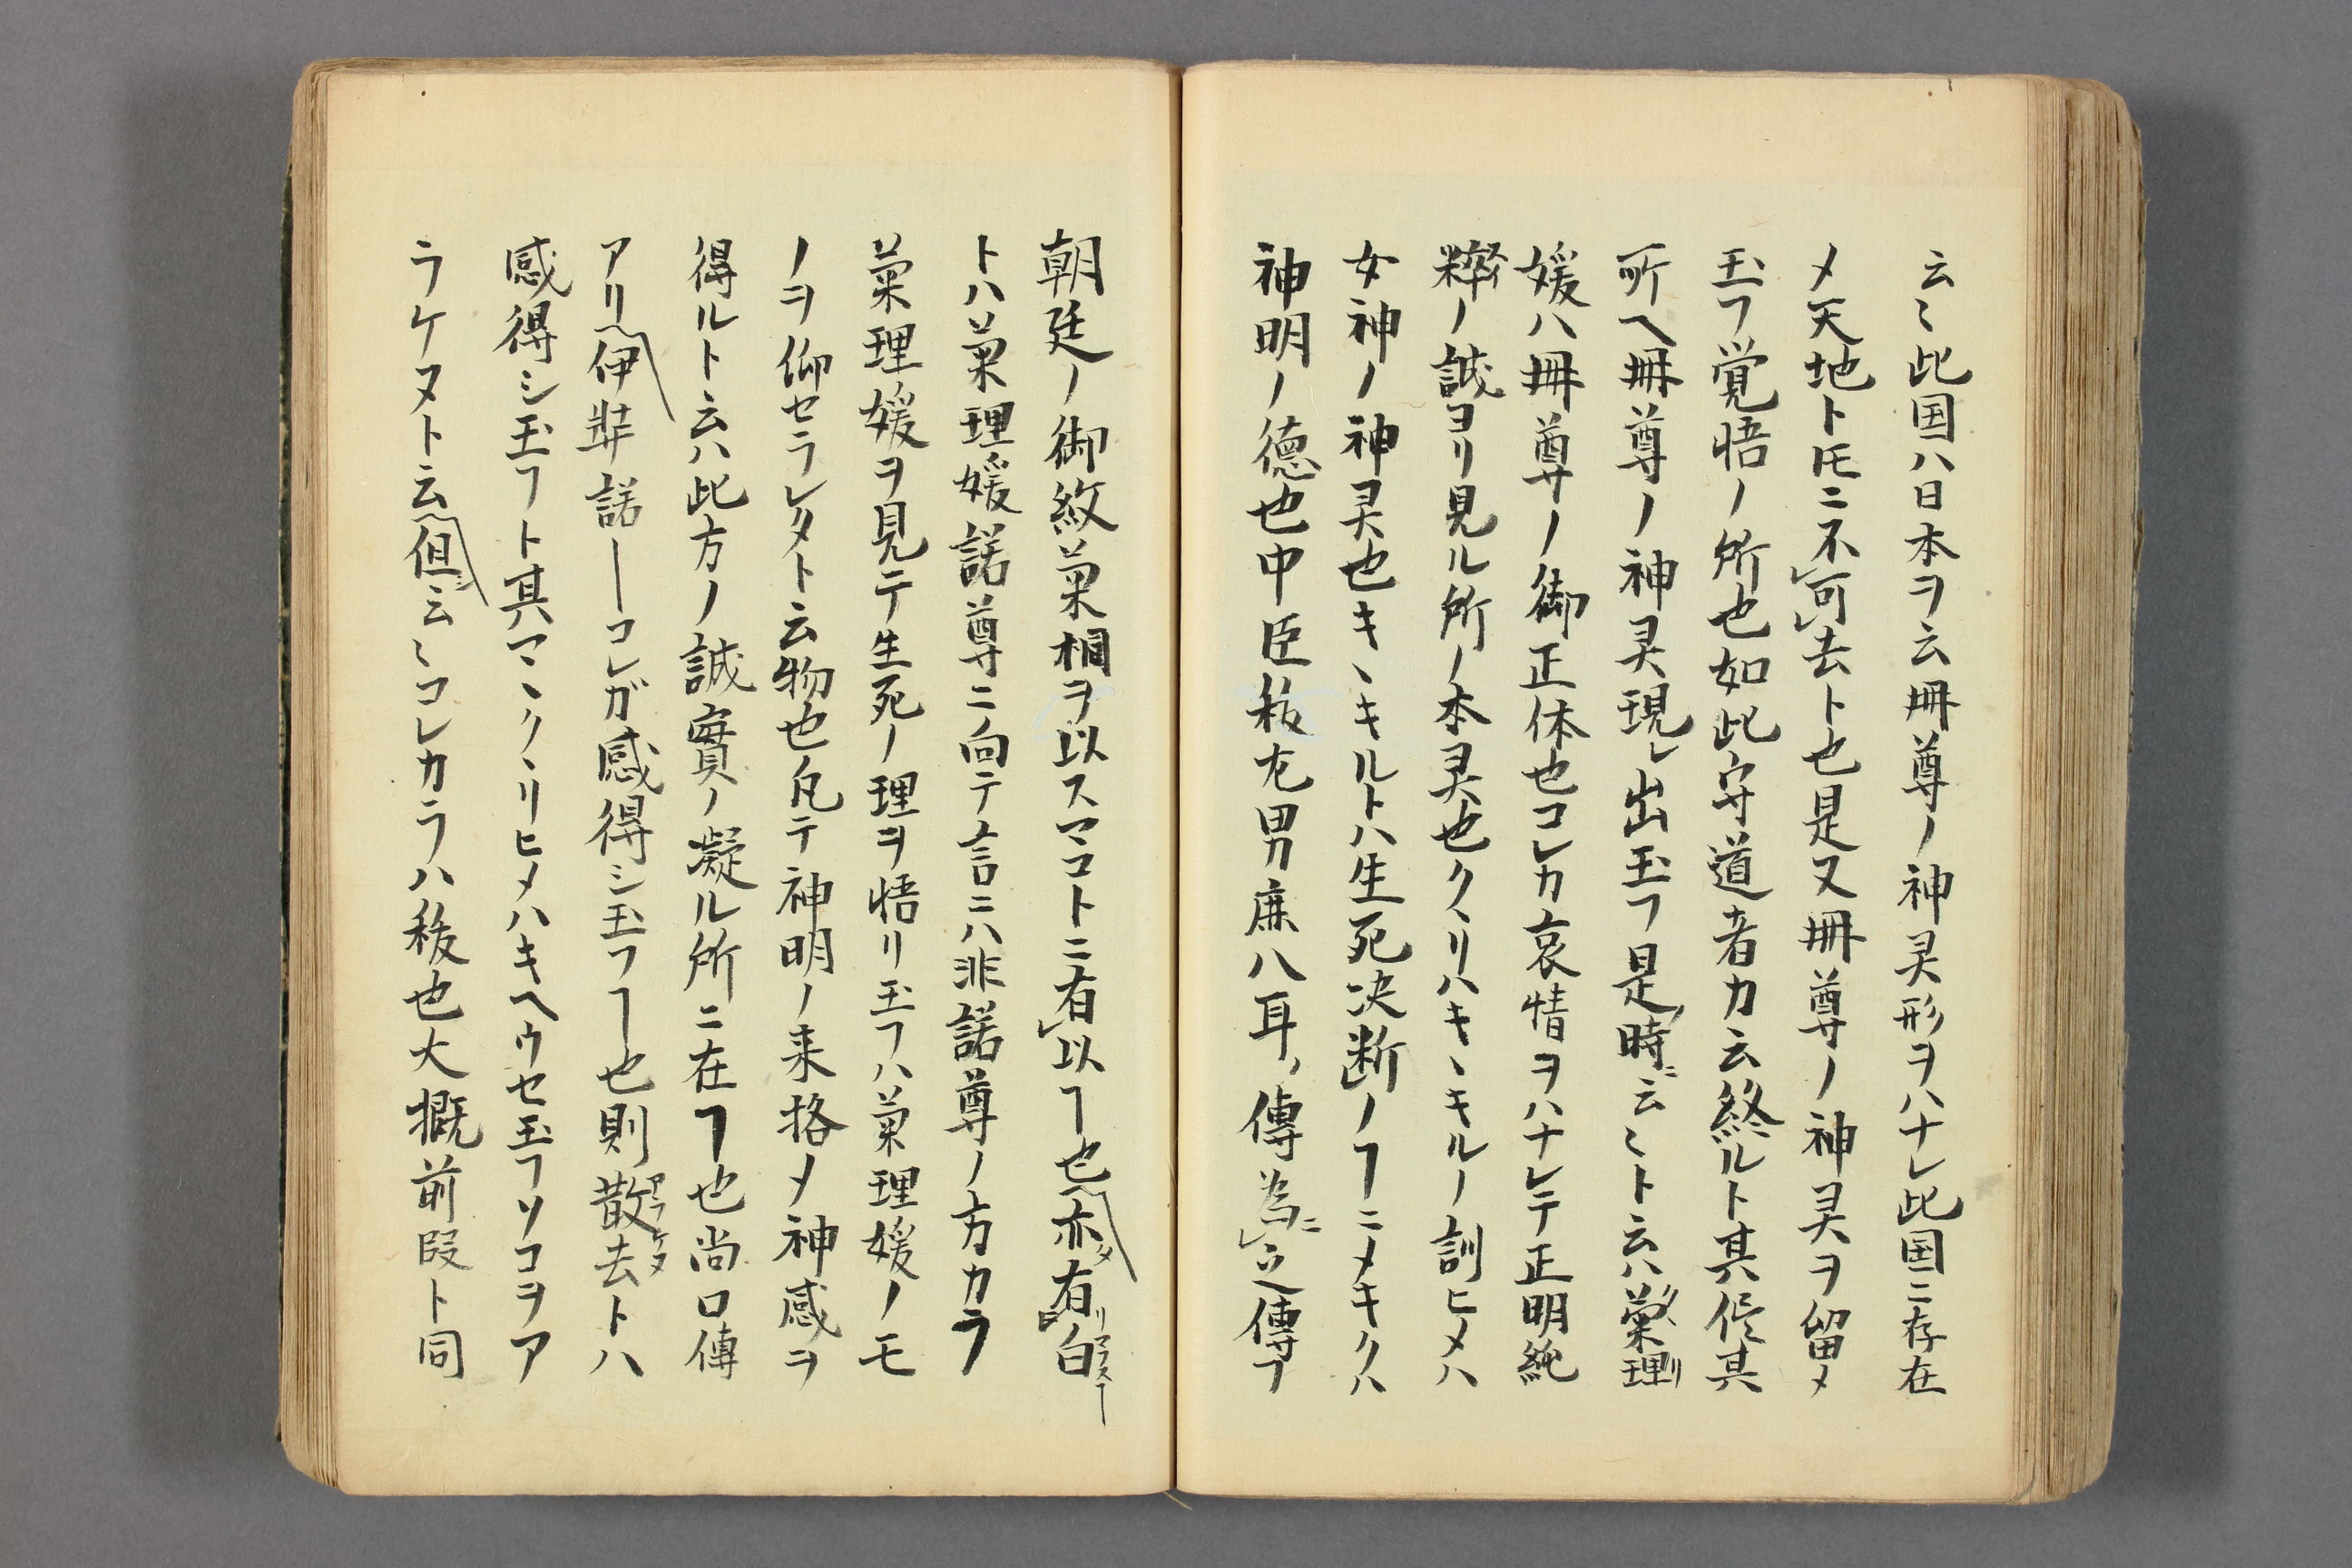 云〻此国ハ日本ヲ云冊尊ノ神灵形ヲハナレ此国ニ存在
メ天地ト𪜈ニ不可去ト也是又冊尊ノ神灵ヲ留メ
玉フ覚悟ノ所也如此守道者カ云終ルト其侭其
所ヘ冊尊ノ神灵現レ出玉フ是時ニ云〻ト云ハ菊理
媛ハ冊尊ノ御正体也コレカ哀情ヲハナレテ正明純
粹ノ誠ヨリ見ル所ノ本灵也クヽリハキヽキルノ訓ヒメハ
女神ノ神灵也キヽキルトハ生死决断ノヿニメキクハ
神明ノ德也中臣秡尤男鹿八耳ノ傳為ニ之傳フ
朝廷ノ御紋菊桐ヲ以スマコトニ有以ヿ也亦有白
トハ菊理媛諾尊ニ向テ言ニハ非諾尊ノ方カラ
菊理媛ヲ見テ生死ノ理ヲ悟リ玉フハ菊理媛ノモ
ノヲ仰セラレタト云物也凡テ神明ノ来格メ神感ヲ
得ルト云ハ此方ノ誠實ノ凝ル所ニ在ヿ也尚口傳
アリ伊弉諾―コレガ感得シ玉フヿ也則散去トハ
感得シ玉フト其マヽクヽリヒメハキヘウセ玉フソコヲア
ラケヌト云但云〻コレカラハ秡也大概前段ト同